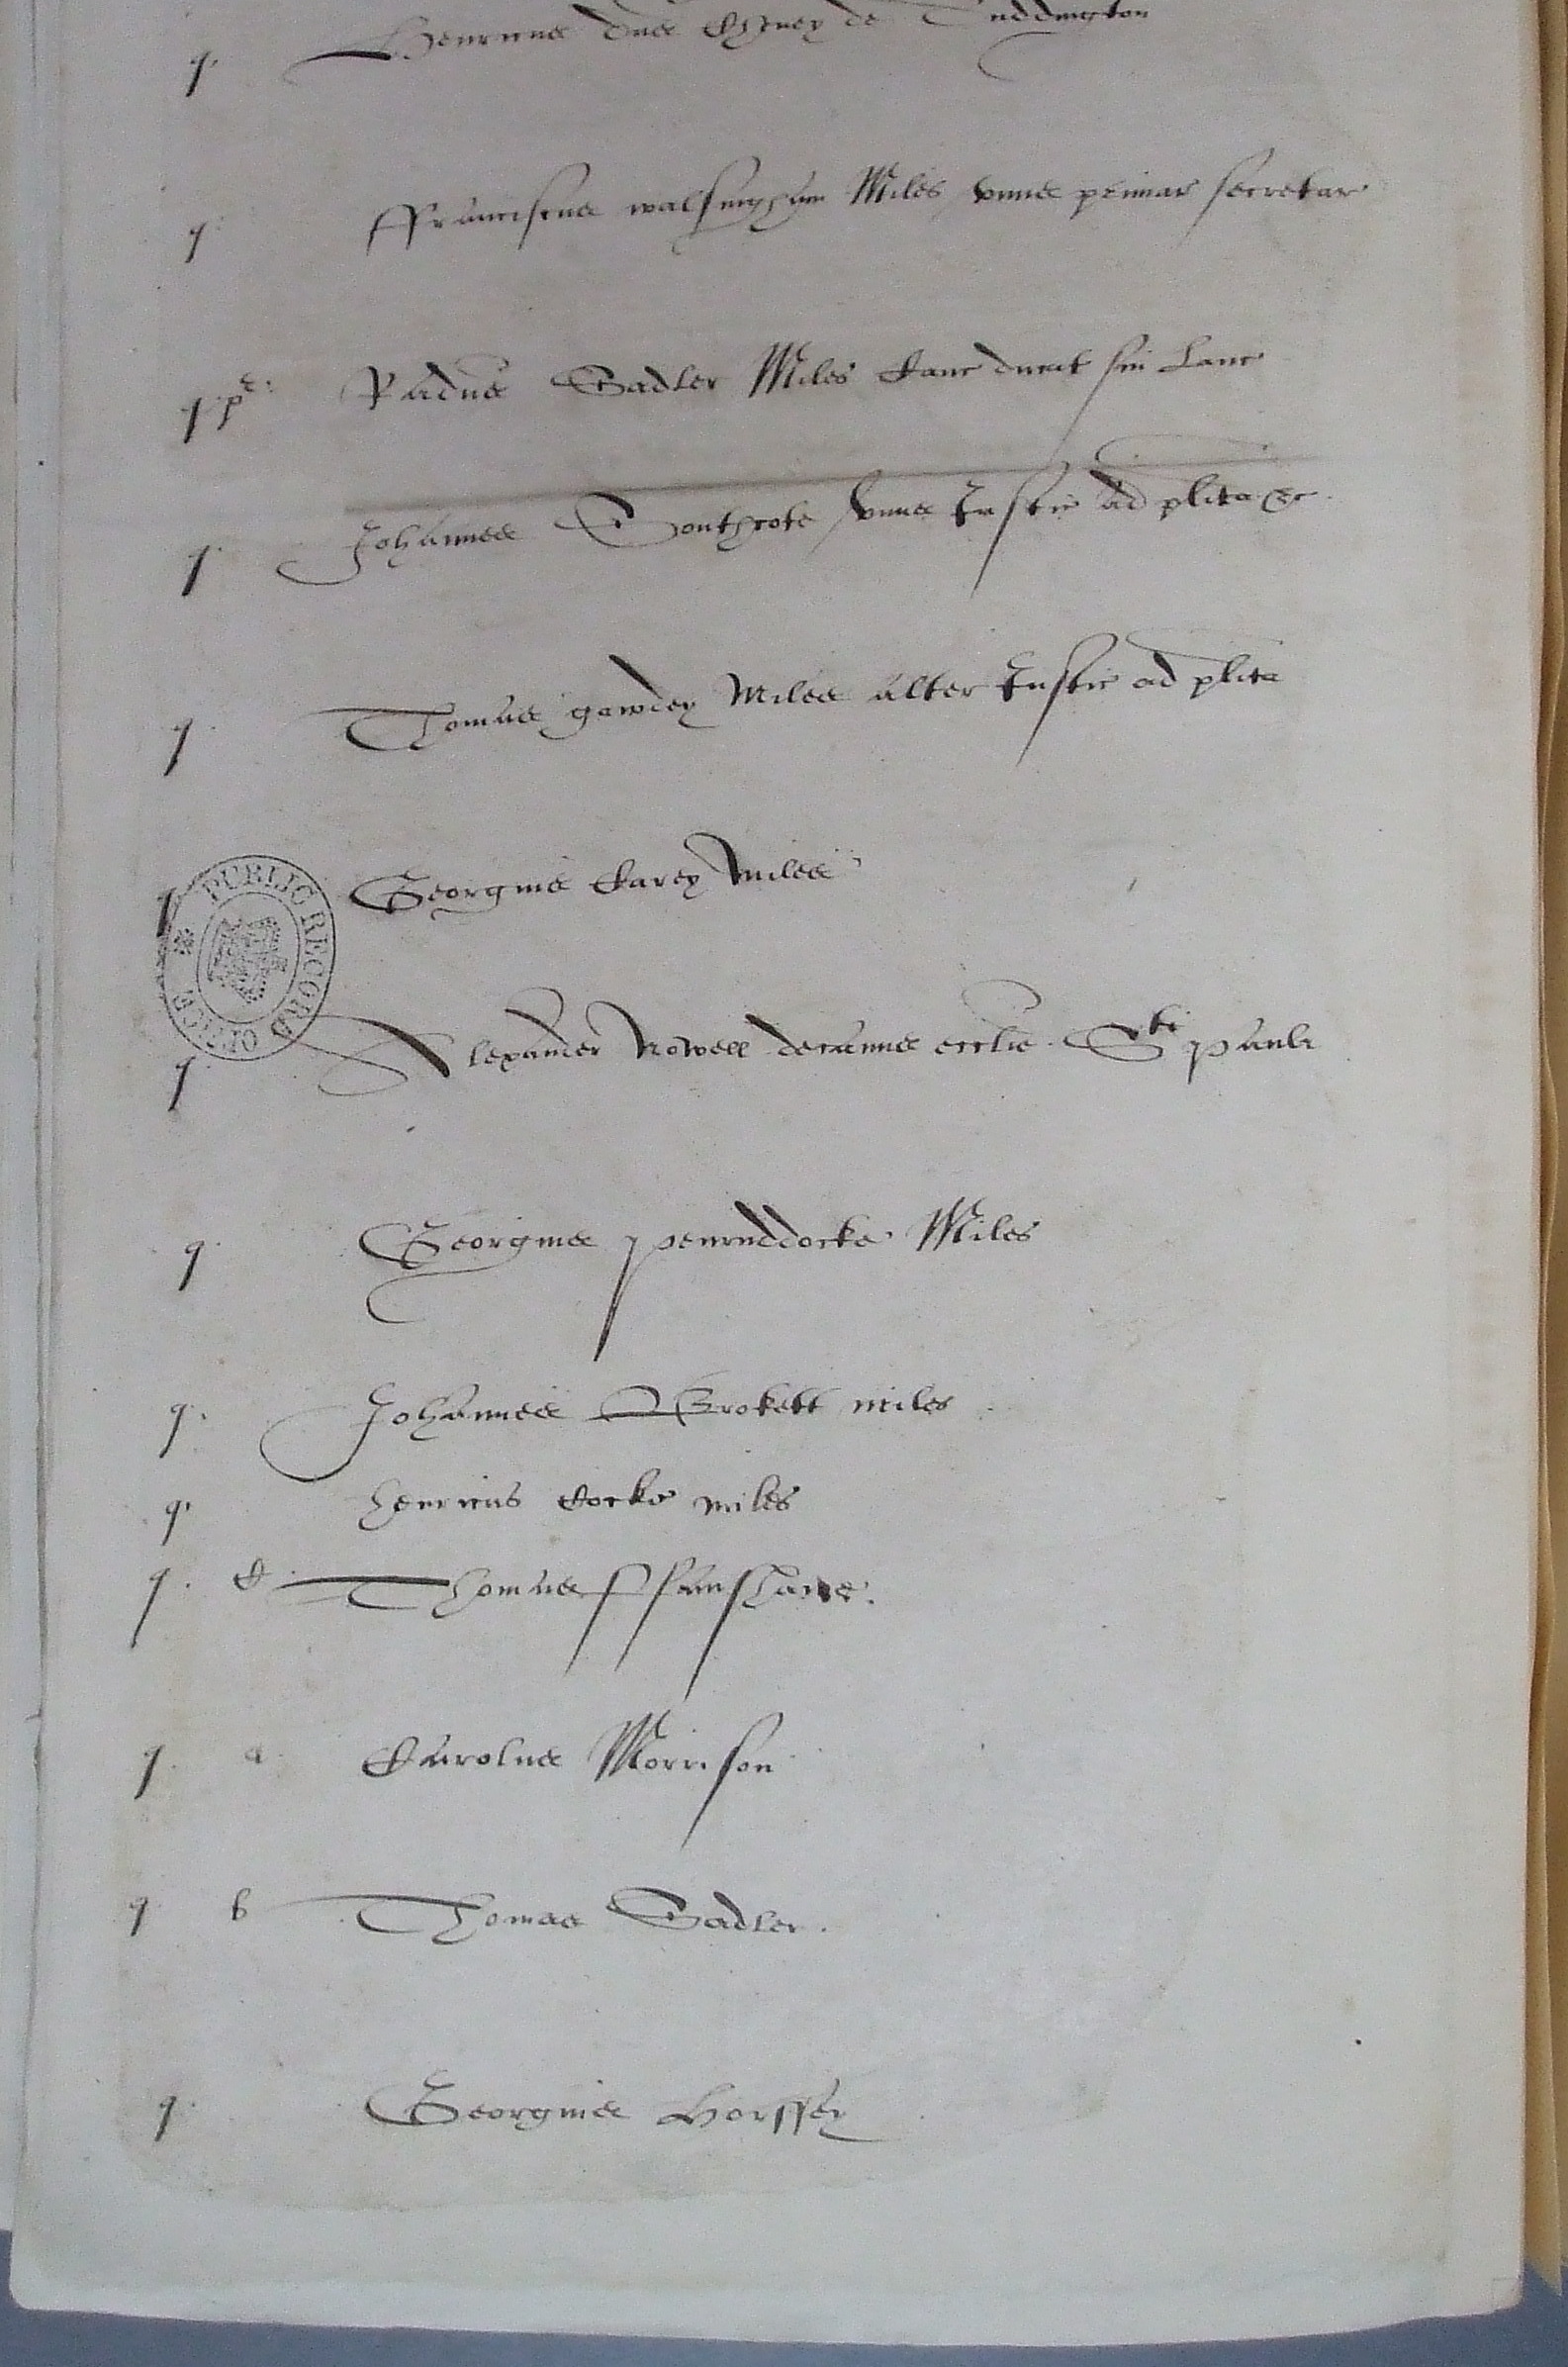 q Henricus dns Cheney de Tuddington
q ffranciscus walsingham Miles vnus primar secretar
q pe: Radus Sadler Miles Canc ducat sui Lanc
q Johannes Southcote vnus Justic ad plita &c
q Thomas gawdey Miles alter Justic ad plita
q Georgius Carey Miles
PUBLIC RECORD OFFICE
q Alexander Nowell decanus ecclie Sti pauli
q Georgius penruddocke Miles
q Johannes Brokett miles
q henricus Cocke miles
q. C Thomas ffanshawe.
q. a Carolus Morrison
q b Thomas Sadler.
q Georgius Horssey